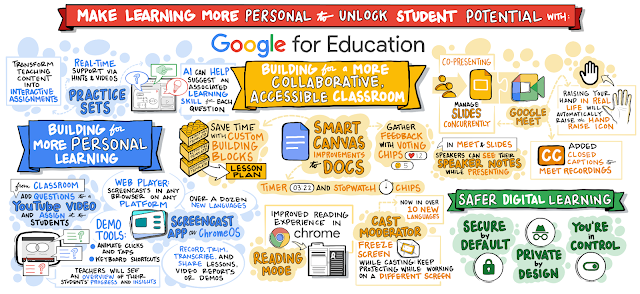 MAKE LEARNING MORE PERSONAL to UNLOCK STUDENT POTENTIAL WITH:
Google for Education
TRANSFORM
TEACHING
CONTENT
INTO
INTERACTIVE
ASSIGNMENTS
REAL-TIME
SUPPORT VIA
HINTS & VIDEOS
PRACTICE
SETS
AI CAN HELP
SUGGEST AN
ASSOCIATED
LEARNING
SKILL for EACH
QUESTION
BUILDING for
MORE PERSONAL
LEARNING
from CLASSROOM
ADD QUESTIONS to
YOUTUBE VIDEO
AND ASSIGN to
STUDENTS
WEB PLAYER
SCREENCASTS IN ANY
BROWSER ON ANY
PLATFORM
DEMO
TOOLS:
• ANIMATE CLICKS
AND TAPS
• KEYBOARD SHORTCUTS
TEACHERS WILL SEE
AN OVERVIEW OF THEIR
STUDENTS' PROGRESS AND INSIGHTS
OVER A DOZEN
NEW LANGUAGES
SCREENCAST
APP on ChromeOS
RECORD, TRIM,
TRANSCRIBE, AND
SHARE LESSONS,
VIDEO REPORTS
OR DEMOS
BUILDING for A MORE
COLLABORATIVE,
ACCESSIBLE CLASSROOM
SAVE TIME
WITH CUSTOM
BUILDING
BLOCKS
LESSON
PLAN
SMART
CANVAS
IMPROVEMENTS
to DOCS
GATHER
FEEDBACK
WITH VOTING
CHIPS
12
TIMER 03:22 AND STOPWATCH CHIPS
IMPROVED READING
EXPERIENCE IN
chrome
READING
MODE
NOW IN OVER
10 NEW
LANGUAGES
CAST
MODERATOR
FREEZE
SCREEN
WHILE CASTING KEEP
PROJECTING WHILE WORKING
ON A DIFFERENT SCREEN
CO-PRESENTING
MANAGE
SLIDES
CONCURRENTLY
GOOGLE
MEET
RAISING YOUR
HAND IN REAL
LIFE WILL
AUTOMATICALLY
RAISE the HAND
RAISE ICON
IN MEET & SLIDES
SPEAKERS CAN SEE THEIR
SPEAKER NOTES
WHILE PRESENTING
CC
ADDED
CLOSED
CAPTIONS to
MEET RECORDINGS
SAFER DIGITAL LEARNING
SECURE
BY
DEFAULT
PRIVATE
BY
DESIGN
YOU'RE
IN
CONTROL